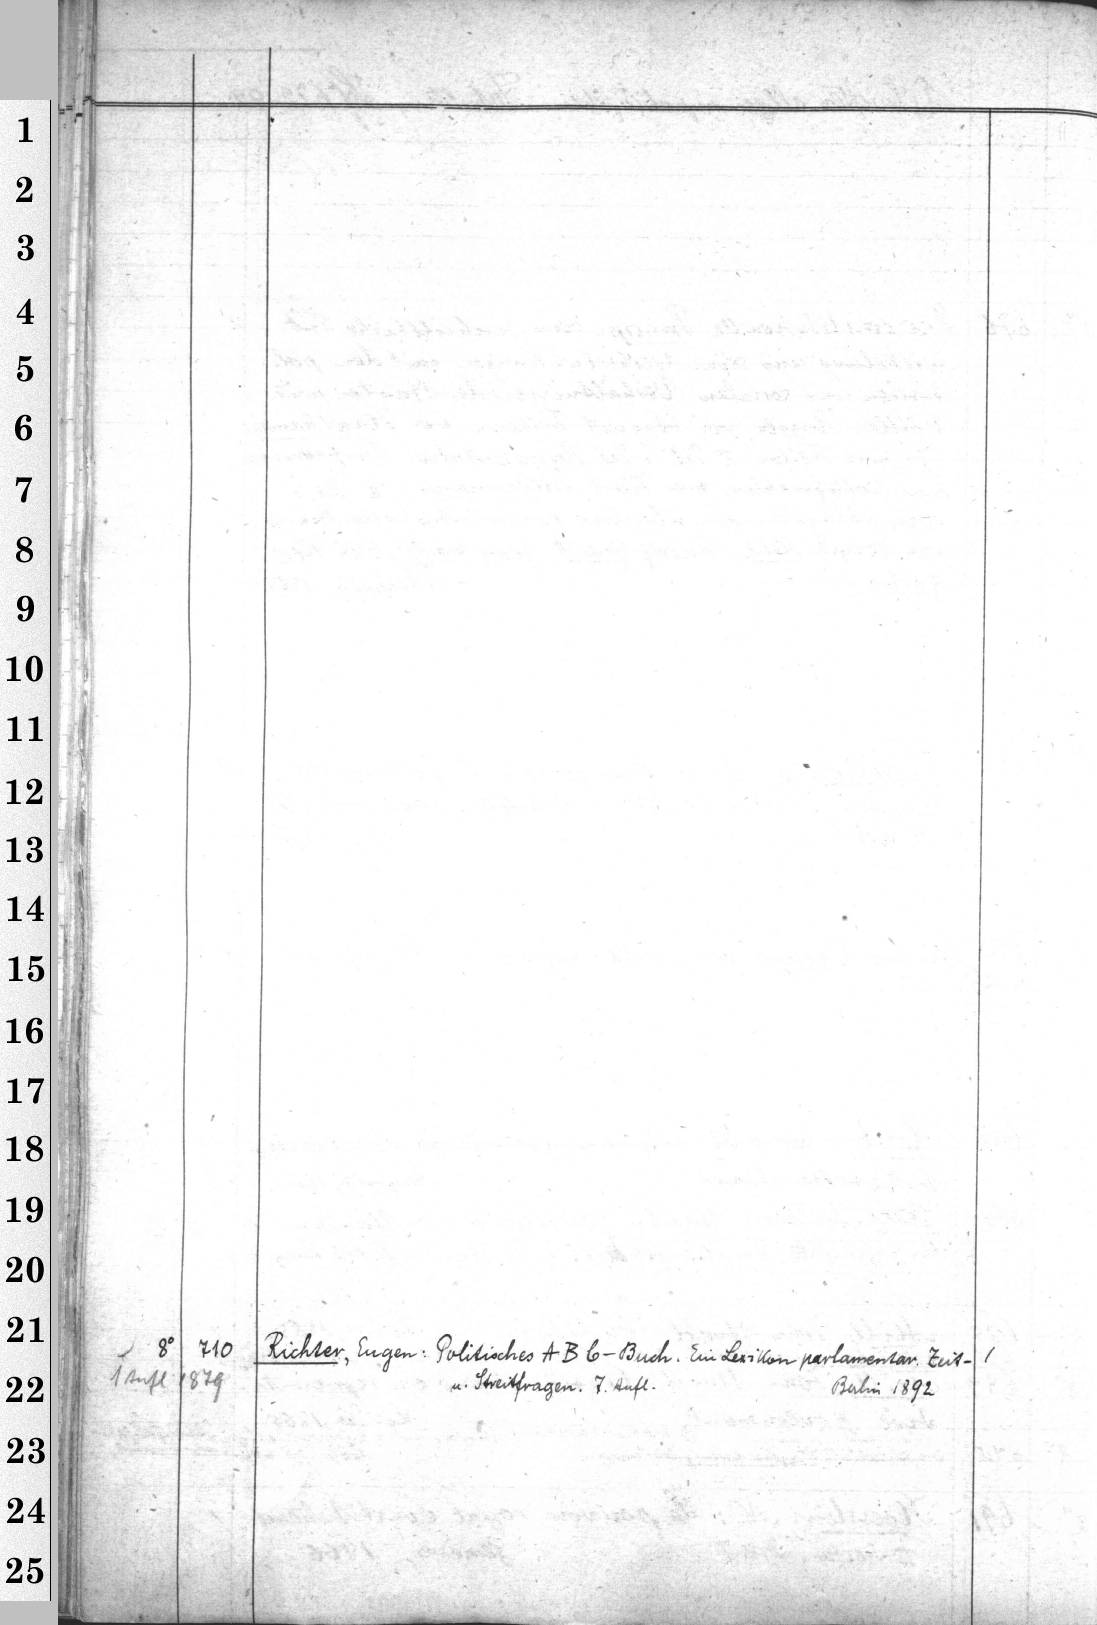 1
2
3
4
5
6
7
8
9
10
11
12
13
14
15
16
17
18
19
20
21
8° 710 Richter, Eugen: Politisches A B C-Buch. Ein Lexikon parlamentar. Zeit- /
1 Aufl 1879
22
u. Streitfragen. 7. Aufl. Berlin 1892
23
24
25